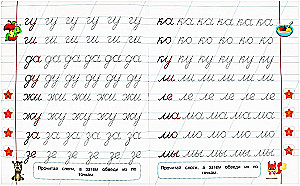 гу гу гу гу гу гу
ги ги ги ги ги ги
да да да да да да
ду ду ду ду ду ду
жи жи жи жи жи
жу жу жу жу жу
за за за за за
зе зе зе зе зе
Прочитай слоги, а затем обведи их по
точкам.
ка ка ка ка ка ка
ко ко ко ко ко ко
ку ку ку ку ку ку
ли ли ли ли ли ли
ле ле ле ле ле ле
мо мо мо мо мо
мы мы мы мы мы
Прочитай слоги, а затем обведи их по
точкам.